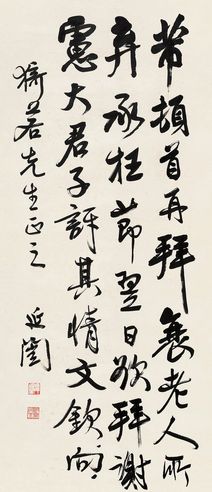 芾頓首再拜衰老人所
弃承枉節翌日欲拜謝
憲大君子訝其情文欽向
若先生正之 延闓